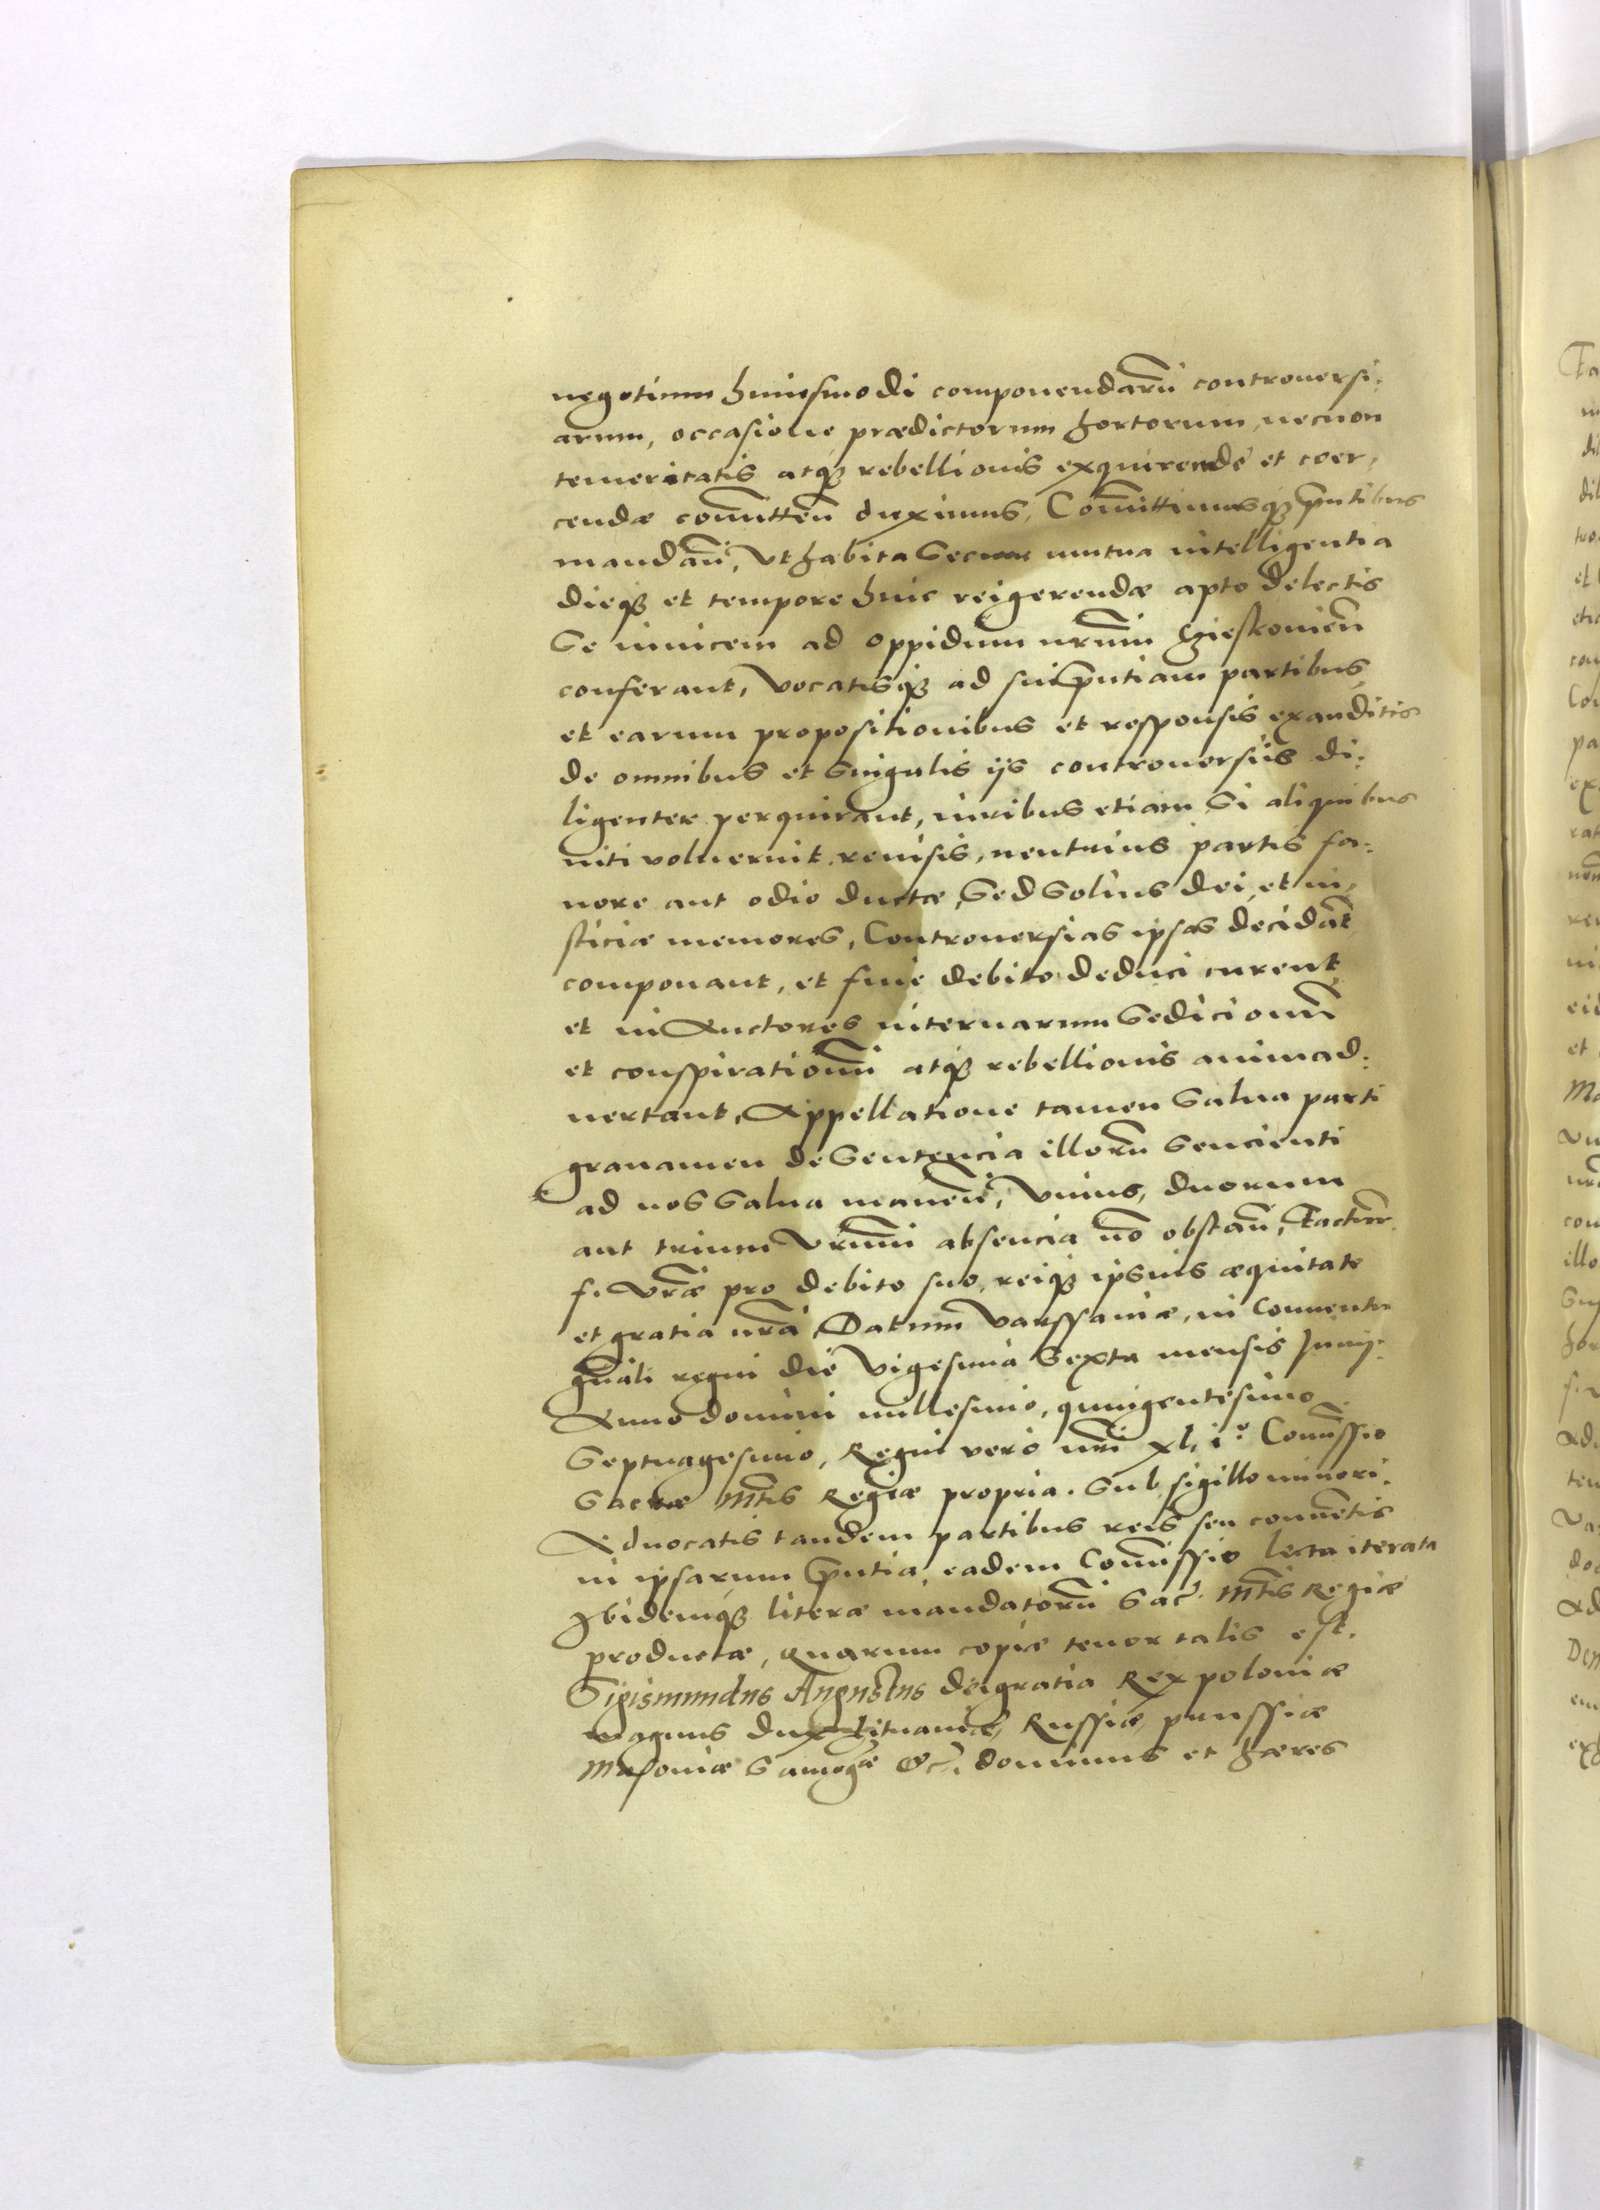 negotium huiusmodi componendarũ controuersi⸗
arum, occasione prædictorum hortorum, necnon
temeritatis atq3 rebellionis exquirendę et coer⸗
cendæ com̃itteñ duximus, Com̃ittimusq3 p̃ntibus
mandañ, Vt habita secum mutua intelligentia
dieq3 et tempore huic rei gerendæ apto delectis
Se inuicem ad oppidum nr̃um
conferant, Vocatisq3 ad sui p̃ntiam partibus,
et earum propositionibus et responsis exauditis
de omnibus et singulis ijs controuersiis di⸗
ligenter perquirant, iuribus etiam si aliquibus
niti voluerint reuisis, neutrius partis fa⸗
uore aut odio ductæ, Sed Solius dei, et iu⸗
sticiæ memores, Controuersias ipsas decidãt
componant, et fine debito deduci curent
et in Auctores internarum Sedicionũ
et conspirationũ atq3 rebellionis animad⸗
uertant, Appellatione tamen Salua parti
grauamen de Sentencia illorũ Sencienti
ad nos Salua maneñ, Vnius, duorum
aut trium Vr̃um absencia nõ obstañ, Factur.
f. Vr̃æ pro debito suo, reiq3 ipsius æquitate
et gratia nr̃a Datum Varssauiæ, in Conuentu
gñali regni die Vigesima Sexta mensis Junij⸗
Anno domini millesimo, quingentesimo
Septuagesimo, Regni vero nr̃i xl, i.° Com̃issio
Sacræ M̃tis Regiæ propria. Sub sigillo minori.
Aduocatis tandem partibus reis seu conuẽtis
in ipsarum p̃ntia, eadem Com̃issio lecta iterata
Ibidemq3 literæ mandatorũ Sac̃ M̃tis Regiæ
productæ, quarum copiæ tenor talis est.
Sigismundus Augustus dei gratia Rex poloniæ
magnus dux Lituaniæ, Russiæ, prussiæ
Masouiæ Samog̃æ &c̃, dominus et hæres